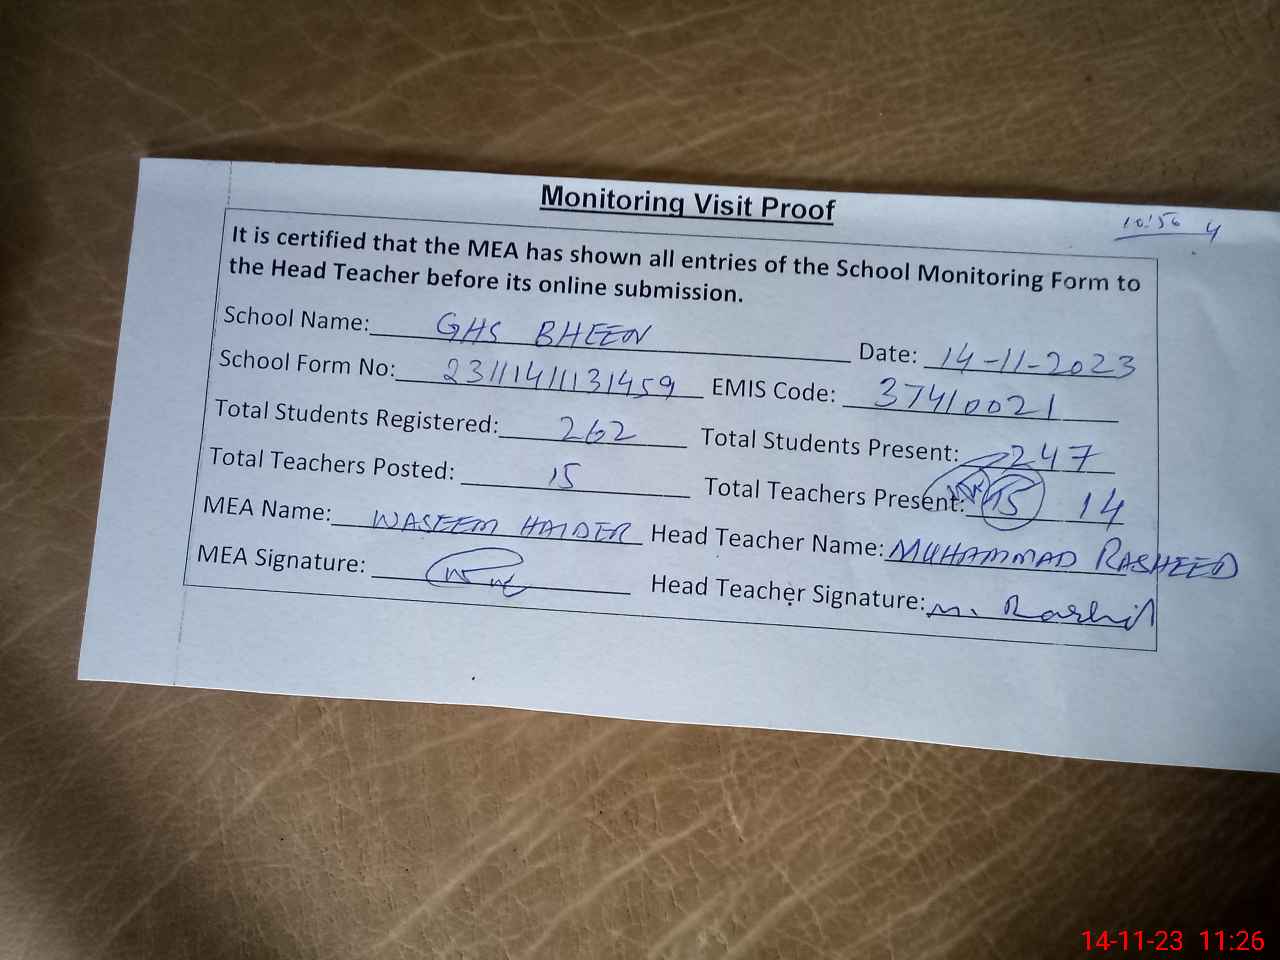 Monitoring Visit Proof
10:56
It is certified that the MEA has shown all entries of the School Monitoring Form to
the Head Teacher before its online submission.
School Name: GHS BHEEN Date: 14-11-2023
School Form No: 23111411131459 EMIS Code: 37410021
Total Students Registered: 262 Total Students Present: 247
Total Teachers Posted: 15 Total Teachers Present: 15 14
MEA Name: WASEEM HAIDER Head Teacher Name: MUHAMMAD RASHEED
MEA Signature: Head Teacher Signature: M. Rashid
14-11-23 11:26